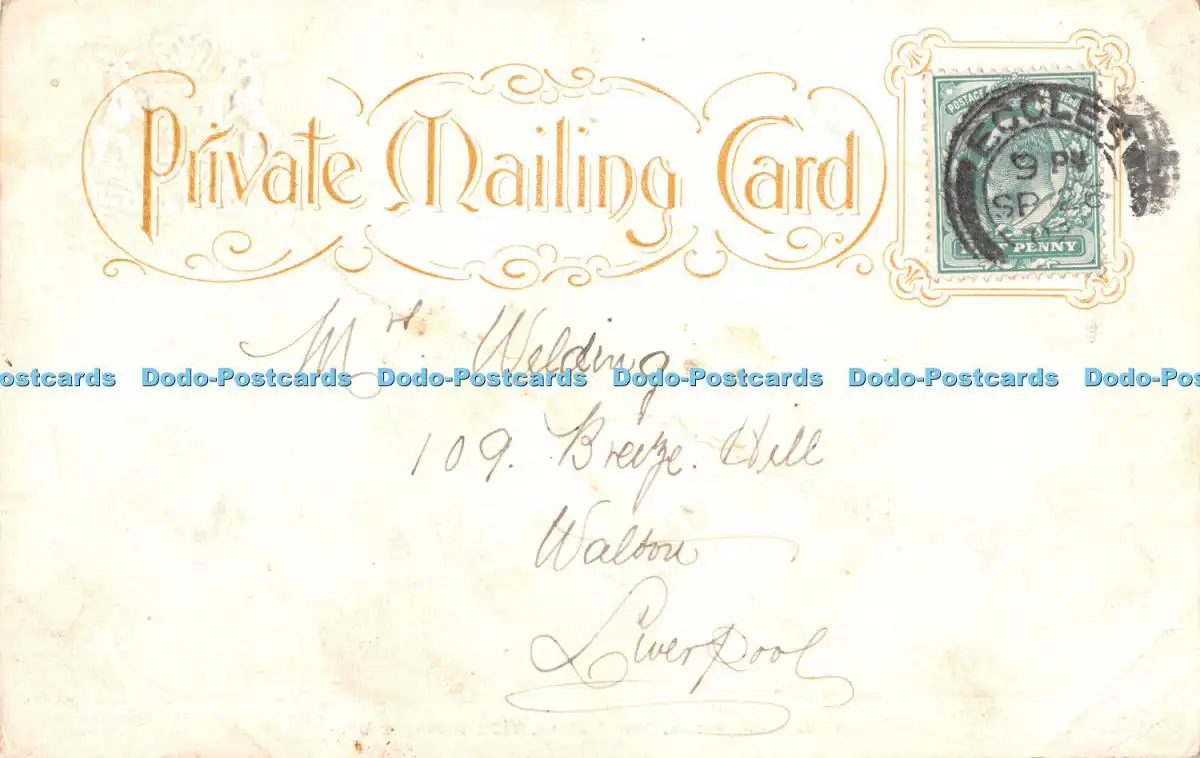 Private Mailing Card
POSTAGE
ECCLES
9 PM
SP
PENNY
Mrs. Welding
Dodo-Postcards Dodo-Postcards Dodo-Postcards Dodo-Postcards
109. Breeze. Hill
Walton
Liverpool